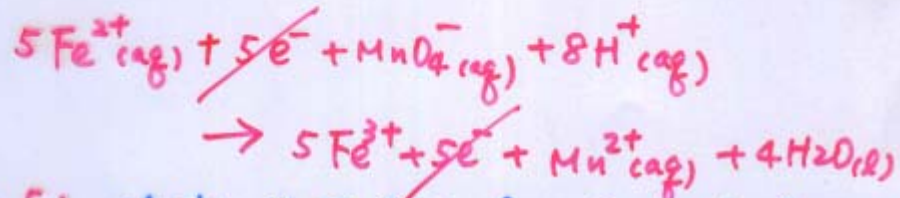 5 Fe²⁺(aq) + 5e⁻ + MnO₄⁻(aq) + 8H⁺(aq)
→ 5 Fe³⁺ + 5e⁻ + Mn²⁺(aq) + 4H₂O(l)